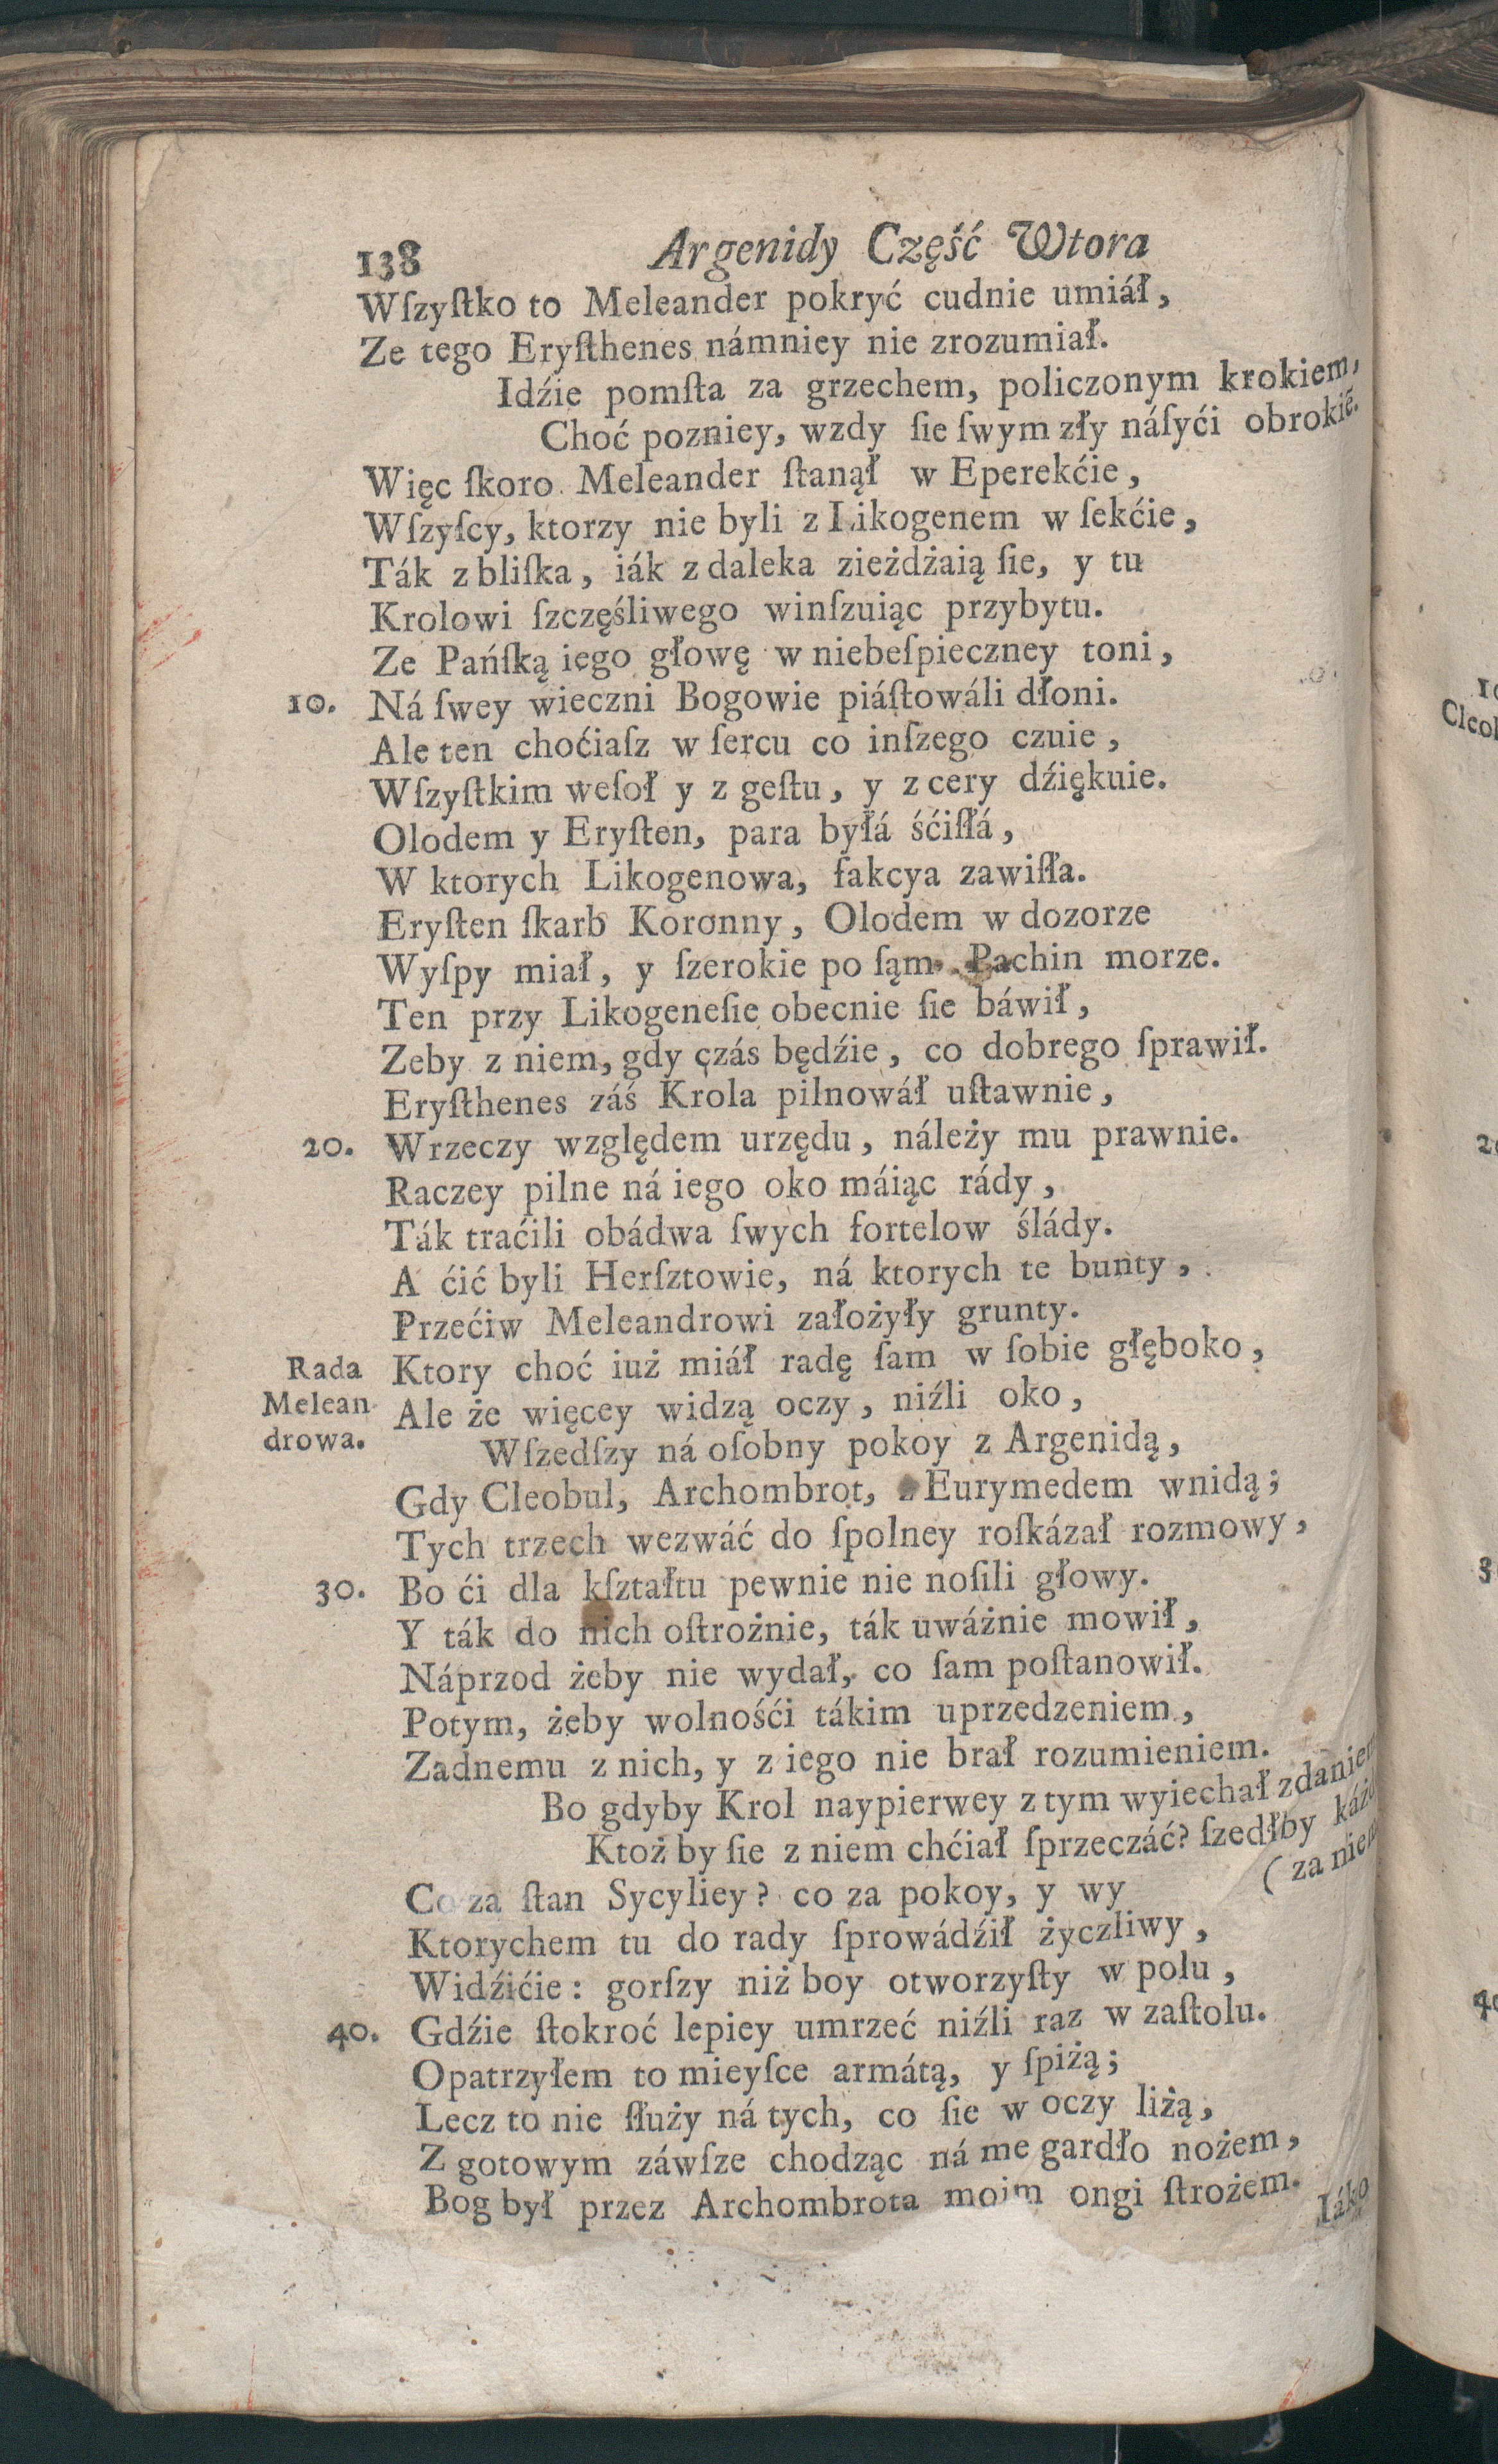 138 Argenidy Część Wtora
Wſzyſtko to Meleander pokryć cudnie umiáł,
Ze tego Eryſthenes námniey nie zrozumiał.
Idźie pomſta za grzechem, policzonym krokiem,
Choć pozniey, wzdy ſie ſwym zły náſyći obrokiẽ.
Więc ſkoro Meleander ſtanął w Eperekćie,
Wſzyſcy, ktorzy nie byli z Likogenem w ſekćie,
Ták z bliſka, iák z daleka zieżdżaią ſie, y tu
Krolowi ſzczęśliwego winſzuiąc przybytu.
Ze Pańſką iego głowę w niebeſpieczney toni,
10. Ná ſwey wieczni Bogowie piáſtowáli dłoni.
Ale ten choćiaſz w ſercu co inſzego czuie,
Wſzyſtkim weſoł y z geſtu, y z cery dźiękuie.
Olodem y Eryſten, para byłá śćiſłá,
W ktorych Likogenowa, fakcya zawiſła.
Eryſten ſkarb Koronny, Olodem w dozorze
Wyſpy miał, y ſzerokie po ſąm Pachin morze.
Ten przy Likogeneſie obecnie ſie báwił,
Zeby z niem, gdy czás będźie, co dobrego ſprawił.
Eryſthenes záś Krola pilnowáł uſtawnie,
20. Wrzeczy względem urzędu, náleży mu prawnie.
Raczey pilne ná iego oko máiąc rády,
Ták traćili obádwa ſwych fortelow ślády.
A ćić byli Herſztowie, ná ktorych te bunty,
Przećiw Meleandrowi założyły grunty.
Rada Melean drowa.
Ktory choć iuż miáł radę ſam w ſobie głęboko,
Ale że więcey widzą oczy, niźli oko,
Wſzedſzy ná oſobny pokoy z Argenidą,
Gdy Cleobul, Archombrot, z Eurymedem wnidą;
Tych trzech wezwáć do ſpolney roſkázał rozmowy,
30. Bo ći dla kſztałtu pewnie nie noſili głowy.
Y ták do nich oſtrożnie, ták uwáżnie mowił,
Náprzod żeby nie wydał, co ſam poſtanowił.
Potym, żeby wolnośći tákim uprzedzeniem,
Zadnemu z nich, y z iego nie brał rozumieniem.
Bo gdyby Krol naypierwey z tym wyiechał zdaniem
Ktoż by ſie z niem chćiał ſprzeczáć? ſzedłby káżd
( za niem
Co za ſtan Sycyliey? co za pokoy, y wy
Ktorychem tu do rady ſprowádźił życzliwy,
Widźićie: gorſzy niż boy otworzyſty w polu,
40. Gdźie ſtokroć lepiey umrzeć niźli raz w zaſtolu.
Opatrzyłem to mieyſce armátą, y ſpiżą;
Lecz to nie ſłuży ná tych, co ſie w oczy liżą,
Z gotowym záwſze chodząc ná me gardło nożem,
Bog był przez Archombrota moim ongi ſtrożem.
Iáko